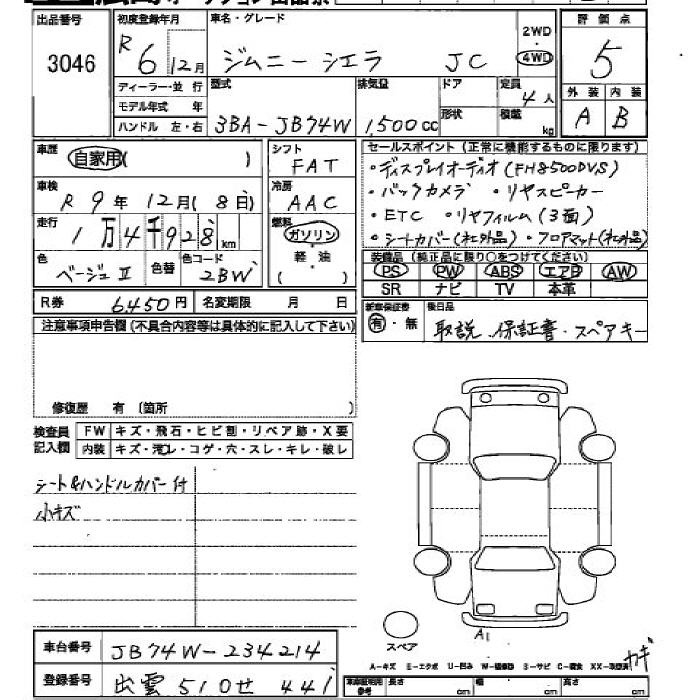 出品番号
3046
初度登録年月
R 6年 12月
車名・グレード
ジムニー シエラ JC
2WD
4WD
評価点
5
外装 内装
A B
ディーラー・並行
モデル年式 年
ハンドル 左・右
型式
3BA-JB74W
排気量
1,500cc
ドア
形状
定員
4人
積載
kg
車歴
自家用( )
シフト
FAT
車検
R 9年 12月( 8日)
冷房
AAC
走行
1万4千928km
燃料
ガソリン
軽油
( )
色
ベージュⅡ
色替
色コード
2BW
R券 6,450円
名変期限 月 日
セールスポイント(正常に機能するものに限ります)
・ディスプレイオーディオ(FH8500DVS)
・バックカメラ ・リヤスピーカー
・ETC ・リヤフィルム(3面)
・シートカバー(社外品)・フロアマット(社外品)
装備品(純正品に限り○をつけてください)
PS PW ABS エアB AW
SR ナビ TV 本革
新車保証書
有・無
後日品
取説 保証書・スペアキー
注意事項申告欄(不具合内容等は具体的に記入して下さい)
修復歴 有(箇所 )
検査員
記入欄
FW キズ・飛石・ヒビ割・リペア跡・X要
内装 キズ・汚レ・コゲ・穴・スレ・キレ・破レ
シート&ハンドルカバー付
小キズ
A1
スペア
A-キズ E-エクボ U-凹み
車台番号 JB74W-234214
登録番号 出雲 510せ 441
長さ cm 幅 cm 高さ cm